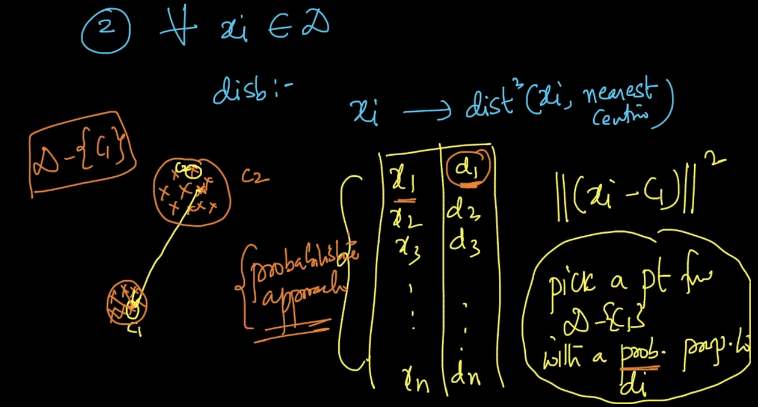 ② ∀ xi ∈ D
disb:-
xi → dist²(xi, nearest
centro)
D-{C₁}
C₂
C2
C₁
{probabilistic
approach
x₁ d₁
x₂ d₂
x₃ d₃
⋮ ⋮
xn dn
||(xi - C₁)||²
pick a pt fm
D-{C₁}
with a prob. prop. to
di